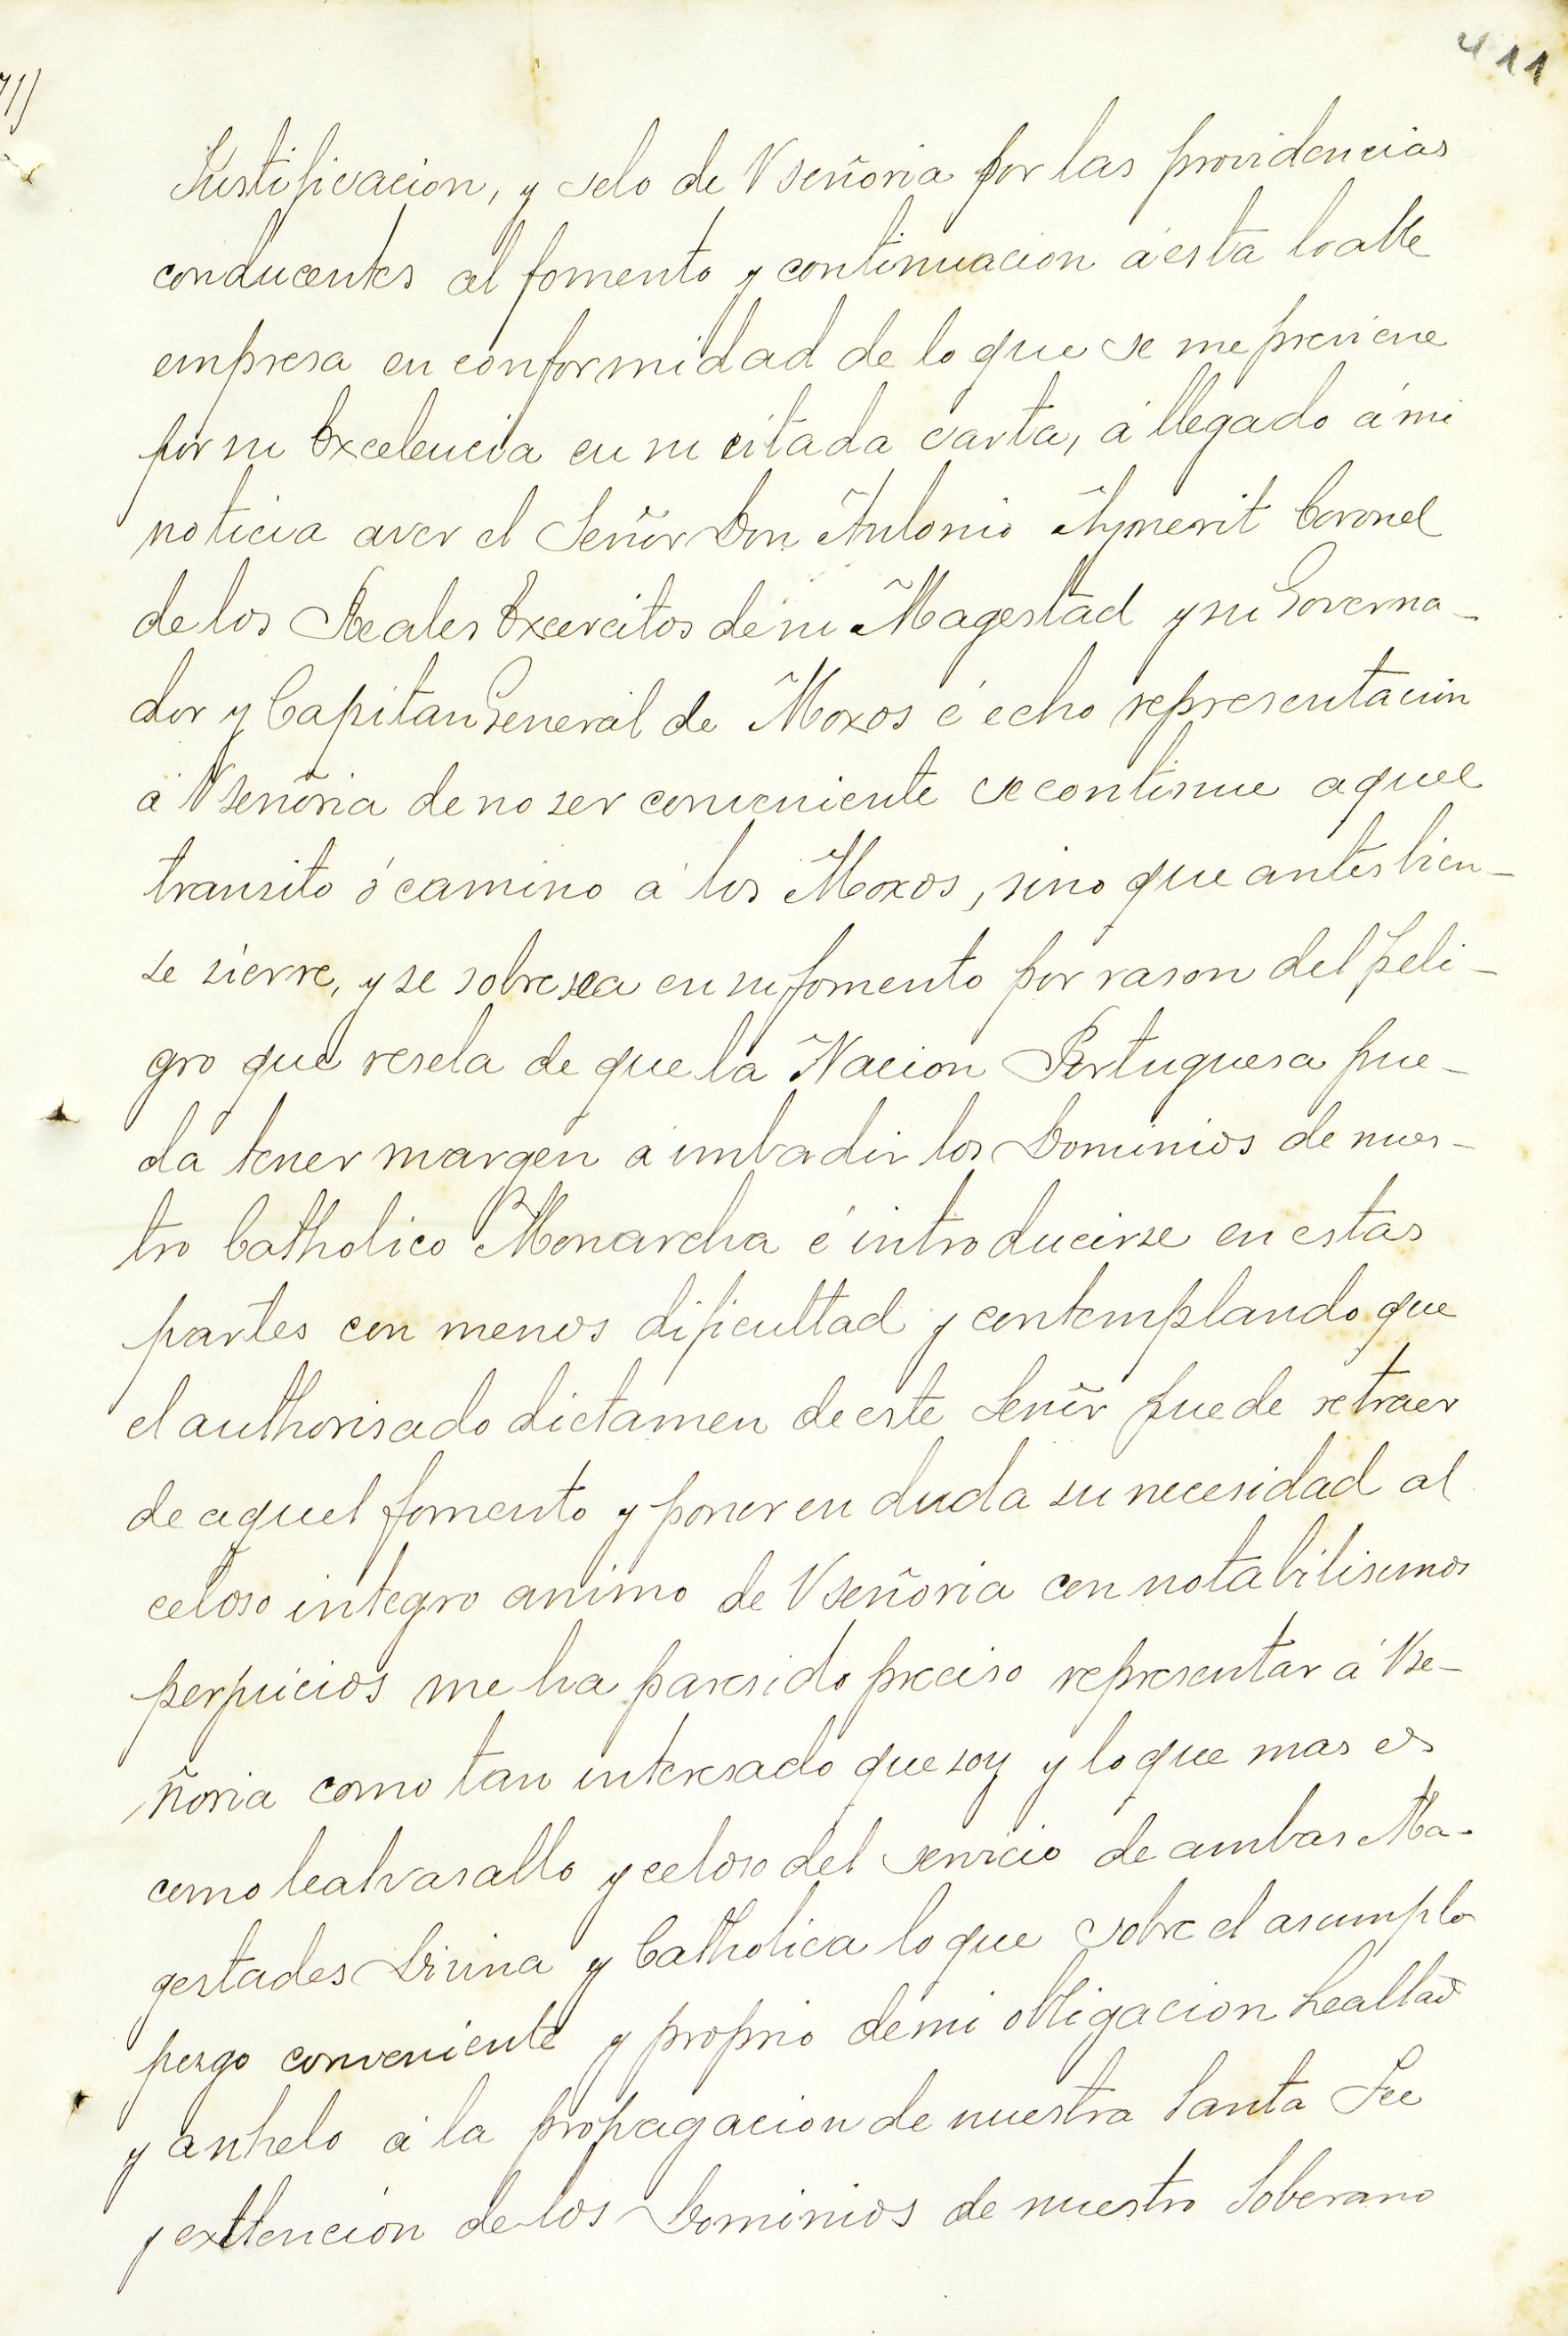 411
71)
Justificacion, y selo de Vseñoria por las providencias
conducentes al fomento y continuacion á esta loable
empresa en conformidad de lo que se me previene
por su Excelencia en su citada carta, á llegado á mi
noticia aver el Señor Don Antonio Aymerit Coronel
de los Reales Exercitos de su Magestad y su Governa-
dor y Capitan General de Moxos é echo representacion
á Vseñoria de no ser conveniente se continue aquel
transito ó camino á los Moxos, sino que antes bien-
se sierre, y se sobresea en su fomento por rason del peli-
gro que resela de que la Nacion Portuguesa pue-
da tener margen á imbadir los Dominios de nues-
tro Catholico Monarcha é introducirse en estas
partes con menos dificultad y contemplando que
el authorisado dictamen de este Señor puede retraer
de aquel fomento y poner en duda su necesidad al
celoso integro animo de Vseñoria con notabilisimos
perjuicios me ha paresido preciso representar á Vse-
ñoria como tan interesado que soy y lo que mas es
como leal vasallo y celoso del servicio de ambas Ma-
gestades Divina y Catholica lo que sobre el asumpto
jusgo conveniente y proprio de mi obligacion Lealtad
y anhelo á la propagacion de nuestra Santa Fee
y exttencion de los Dominios de nuestro Soberano